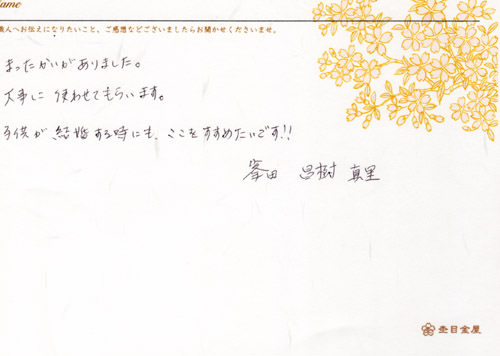 ame
職人へお伝えになりたいこと、ご感想などございましたらお聞かせくださいませ。
まったかいがありました。
大事に使わせてもらいます。
子供が結婚する時にも、ここをすすめたいです!!
峯田 昌樹 真里
杢目金屋